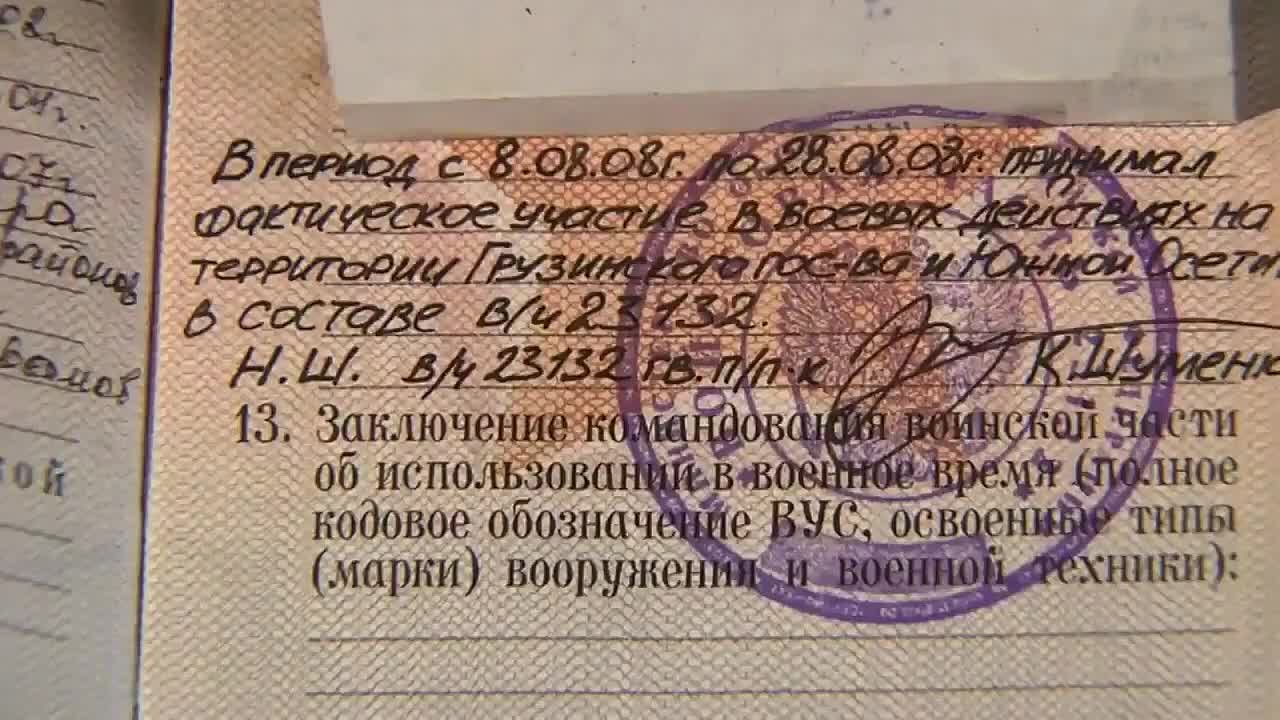 04г.
07г.
районов
В период с 8.08.08г. по 28.08.08г. принимал
фактическое участие в боевых действиях на
территории Грузинского гос-ва и Южной Осети
в составе в/ч 23132.
Н.Ш. в/ч 23132 гв.п/п-к К.Шуменк
13. Заключение командования воинской части
об использовании в военное время (полное
кодовое обозначение ВУС, освоенные типы
(марки) вооружения и военной техники):